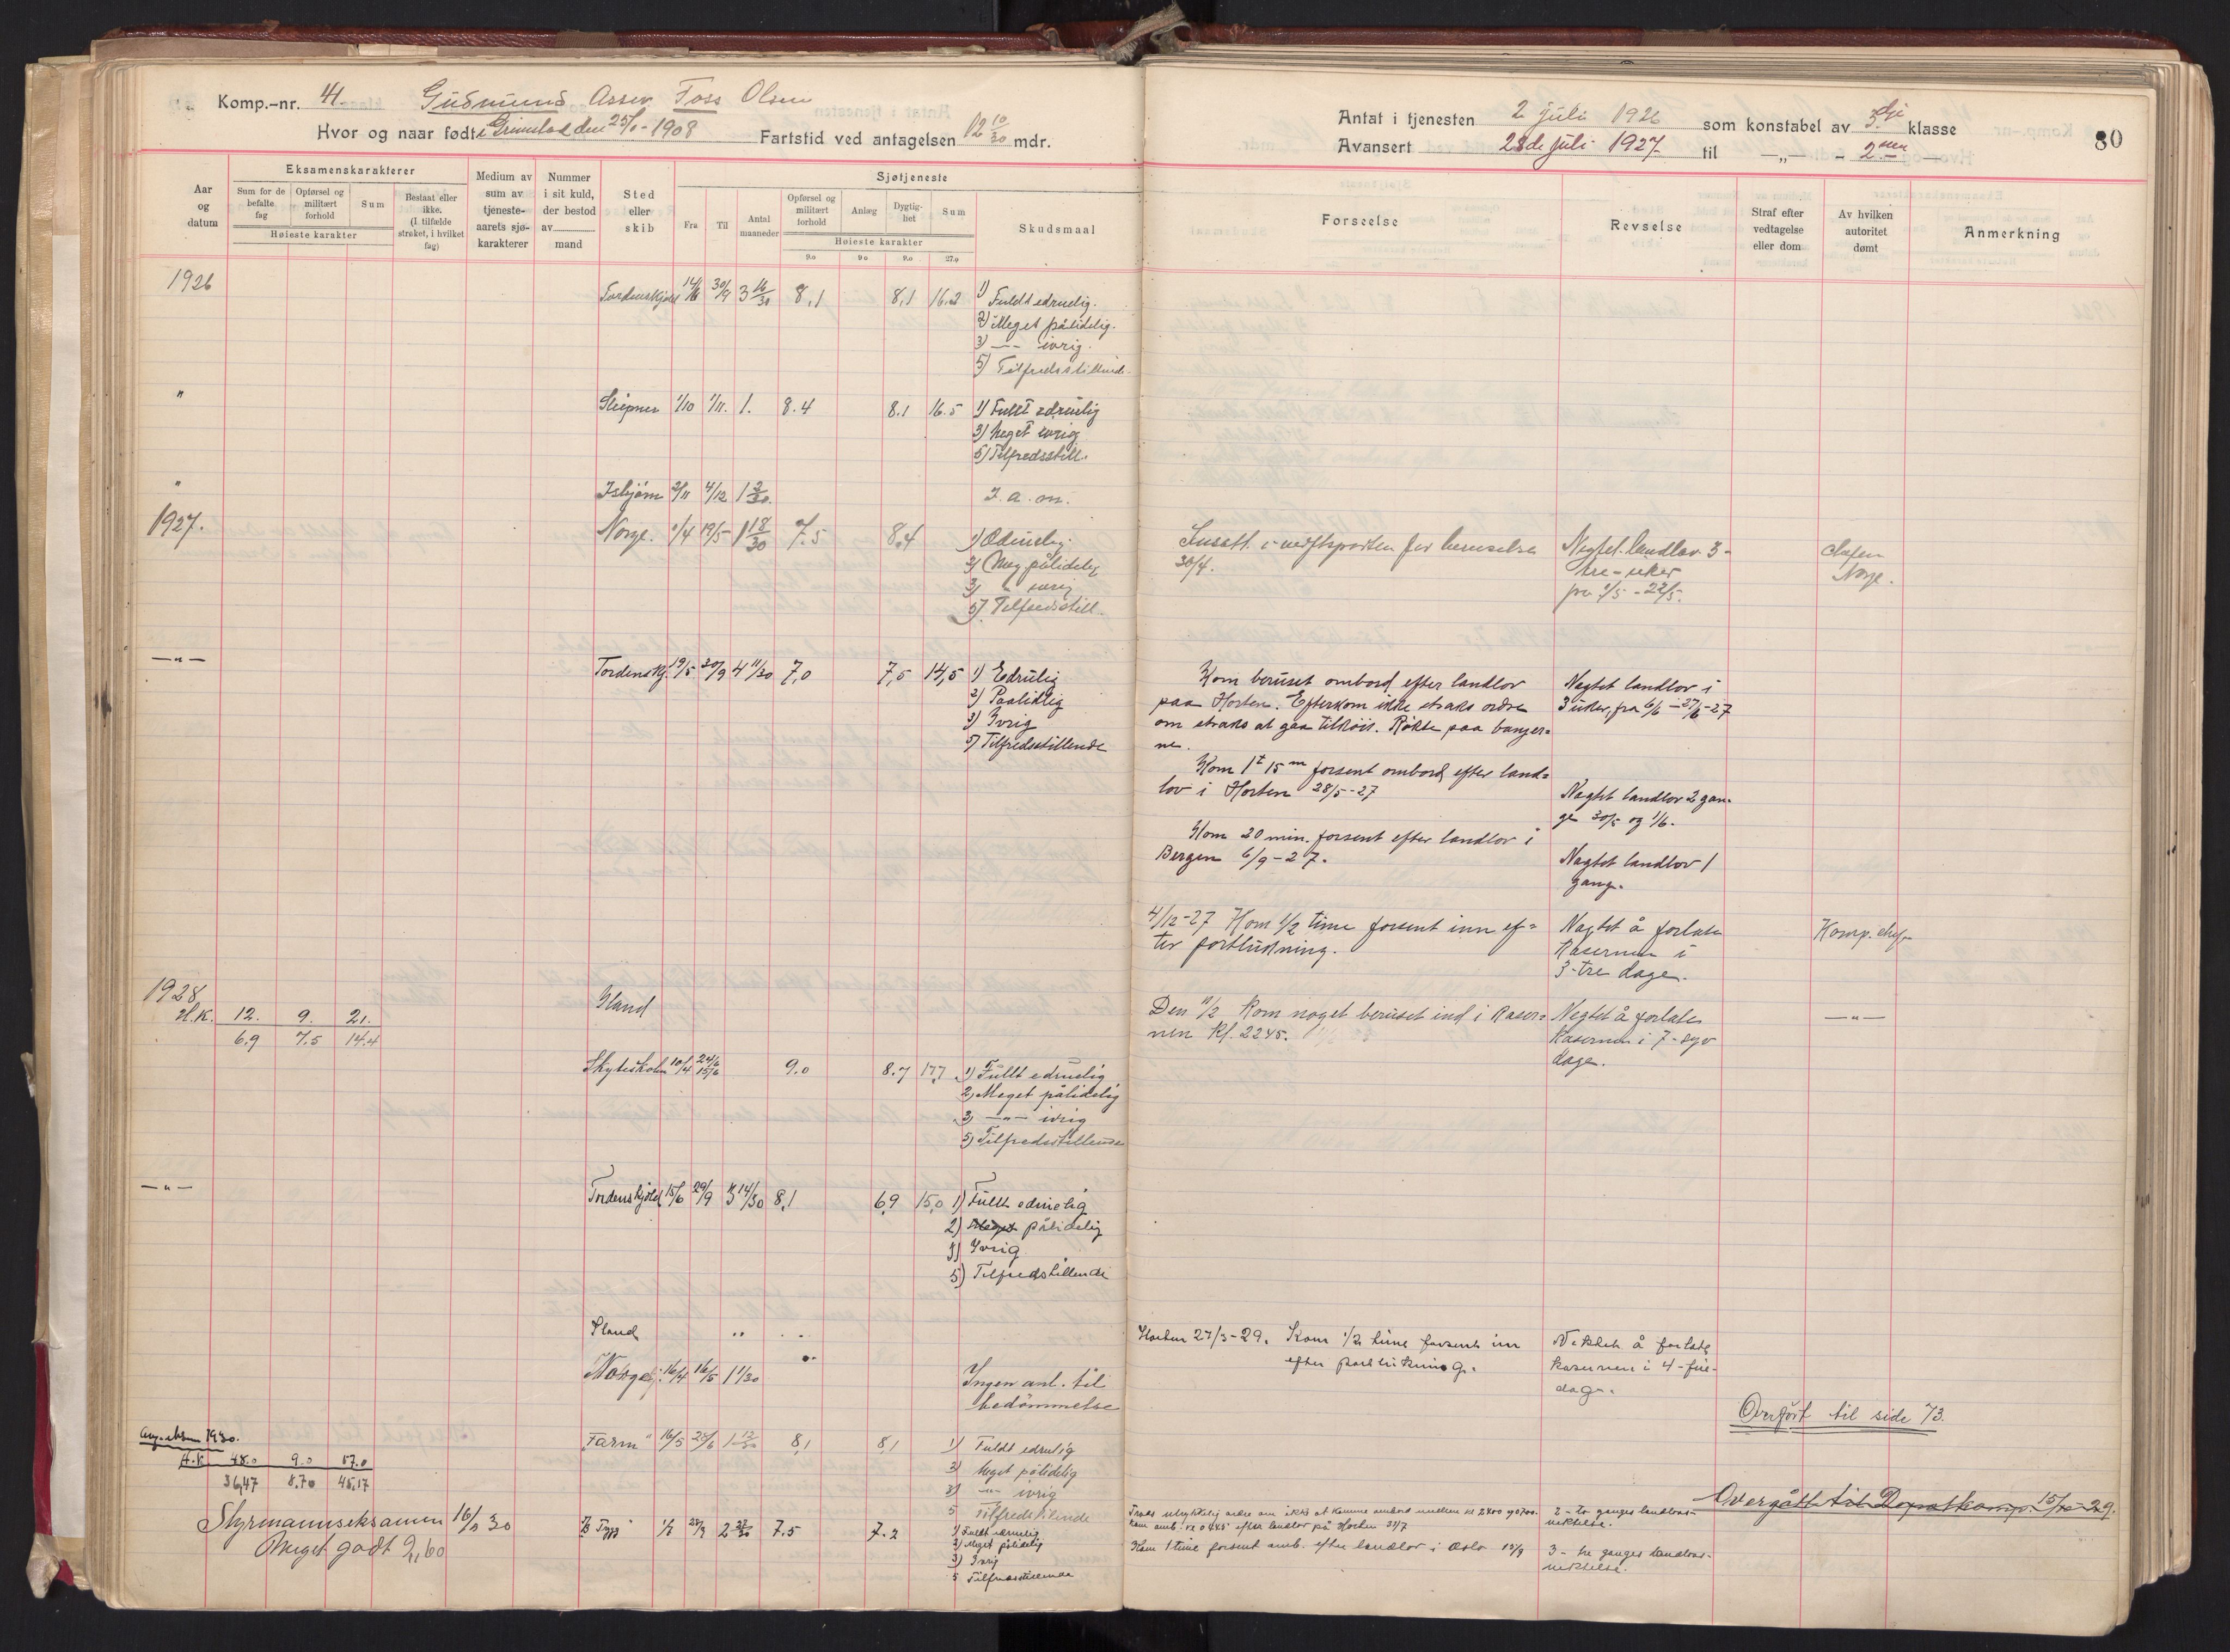 Komp.-nr. 41. Gudmund Asser Foss Olsen
Hvor og naar født i Grimstad den 25/ -1908 Fartstid ved antagelsen 12 10/30 mdr.
Eksamenskarakterer
Sjøtjeneste
Aar og datum
Sum for de befalte fag
Opførsel og militært forhold
Sum
Høieste karakter
Bestaat eller ikke. (I tilfælde strøket, i hvilket fag)
Medium av sum av tjeneste-aarets sjø-karakterer
Nummer i sit kuld, der bestod av mand
Sted eller skib
Fra
Til
Antal maaneder
Opførsel og militært forhold
Anlæg
Dygtig-het
Sum
Høieste karakter
9.0 9.0 9.0 27.0
Skudsmaal
1926
Tordenskjold 14/6 30/9 3 16/30 8,1 8,1 16.2 1) Fuldt edruelig.
2) Meget pålidelig.
3) —„— ivrig.
5) Tilfredsstillende.
" Sleipner 1/10 1/11. 1. 8.4 8.1 16.5 1) Fullt edruelig
3) Meget ivrig
5) Tilfredsstill.
" Isbjørn 2/11 4/12 1 2/30. I. a. on.
1927. Norge. 1/4 19/5 1 18/30 7.5 8.4 1) Edruelig.
2) Meg pålidelig
3) " ivrig
5) Tilfredsstill.
—"— Tordenskj. 19/5 30/9 4 11/30 7,0 7,5 14,5 1) Edruelig
2) Paalidlig
3) Ivrig
5) Tilfredsstillende
1928 Iland
H.K. 12. 9. 21.
6.9 7.5 14.4
Skyteskolen 10/4 24/6 15/6 9.0 8.7 17.7 1) Fullt edruelig
2) Meget pålidelig
3) —"— ivrig
5) Tilfredsstillende
—"— Tordenskjold 15/6 29/9 3 14/30 8,1 6,9 15,0 1) Fullt edruelig
2) Meget pålidelig
3) Ivrig
5) Tilfredstillende
Iland
Norge 16/4 16/5 1 1/30 Ingen anl. til
bedømmelse
1930.
H.K. 48.0 9.0 57.0
36,47 8.70 45,17
"Farm" 16/5 1 12/30 8,1 8,1 1) Fuldt edruelig
2) Meget pålidelig
3) —"— ivrig
5 Tilfredstillende
Styrmannseksamen 30
Meget godt 2,60
7.5 7.2
1) Fuldt edruelig
2) Meget pålidelig
3) Ivrig
5 Tilfredsstillende
Antat i tjenesten 2 juli 1926 som konstabel av 3dje klasse
Avansert 28de juli 1927 til —„— - 2nen —
80
Forseelse
Revselse
Straf efter vedtagelse eller dom
Av hvilken autoritet dømt
Anmerkning
Innsatt i vaktsporten for beruselse
30/4.
Negtet landlov 3-
tre-uker
fra 1/5 - 22/5.
chefen
Norge.
Kom beruset ombord efter landlov
paa Horten. Efterkom ikke straks ordre
om straks at gaa tilkøis. Røkte paa banjer=
ne.
Nægtet landlov i
3 uker, fra 6/6 - 27/6-27
Kom 1t 15m forsent ombord efter land=
lov i Horten 28/5-27
Nægtet landlov 2 gan-
ge 30/5 og 1/6.
Kom 20 min. forsent efter landlov i
Bergen 6/9-27.
Nægtet landlov 1
gang.
4/12-27 Kom 1/2 time forsent inn ef=
ter portlukning.
Nægtet å forlate
Kasernen i
3-tre dage.
Komp. chef
Den 11/2 kom noget beruset ind i Kaser=
nen Kl. 2245.
Negtet å forlate
Kasernen i 7-syv
dage.
—"—
Horten 27/3-29. Kom 1/2 time forsent inn
efter portlukning.
Nektet å forlate
kasernen i 4-fire-
dage.
Overført til side 73.
Overgått til Depotkomp. 15/10-29.
Trods uttrykkelig ordre om ikke at komme ombord mellem kl 2400 og 0700.
kom omb. kl 0445 efter landlov på Horten 31/7
2 - to ganges landlovs-
nektelse.
Kom 1 time forsent omb. efter landlov i Oslo 15/9
3 - tre ganges landlovs-
nektelse.